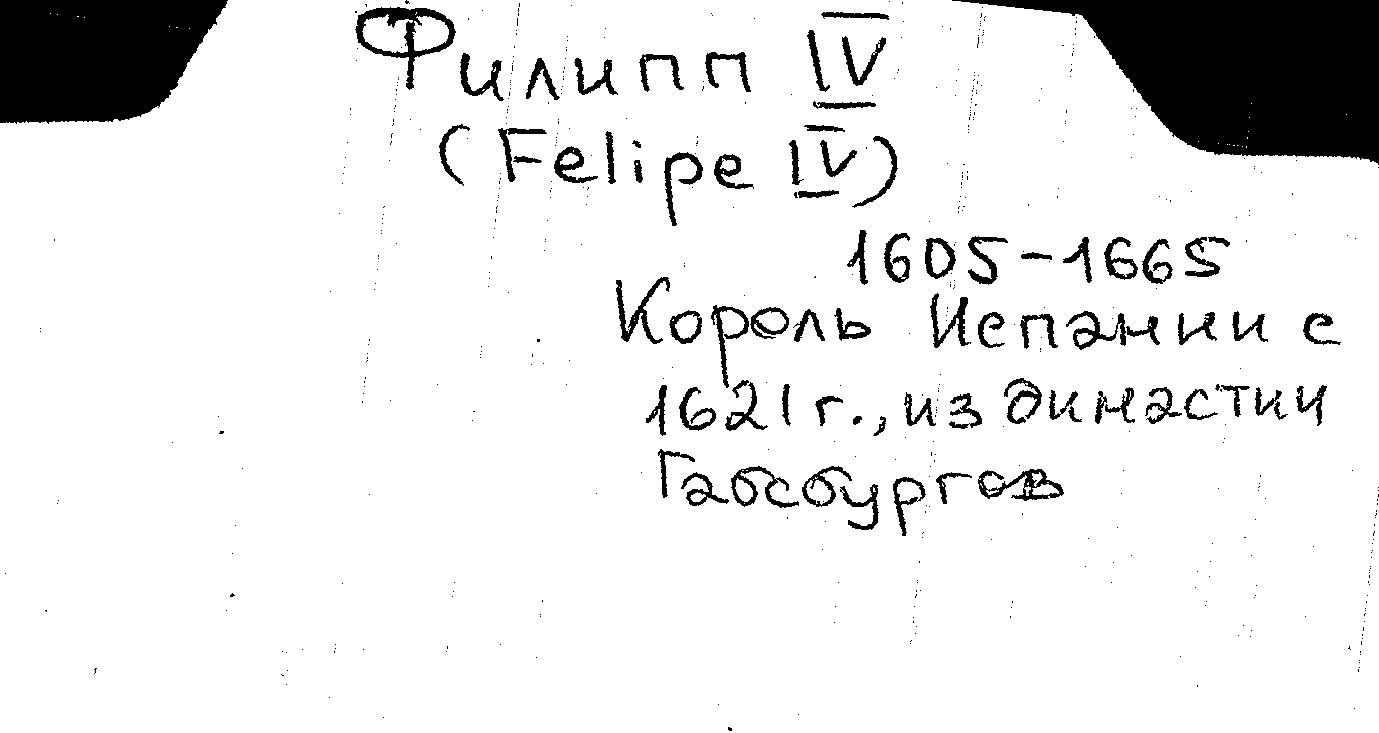 Филипп IV
(Felipe IV)
1605-1665
Король Испании с
1621 г., из династии
Габсбургов